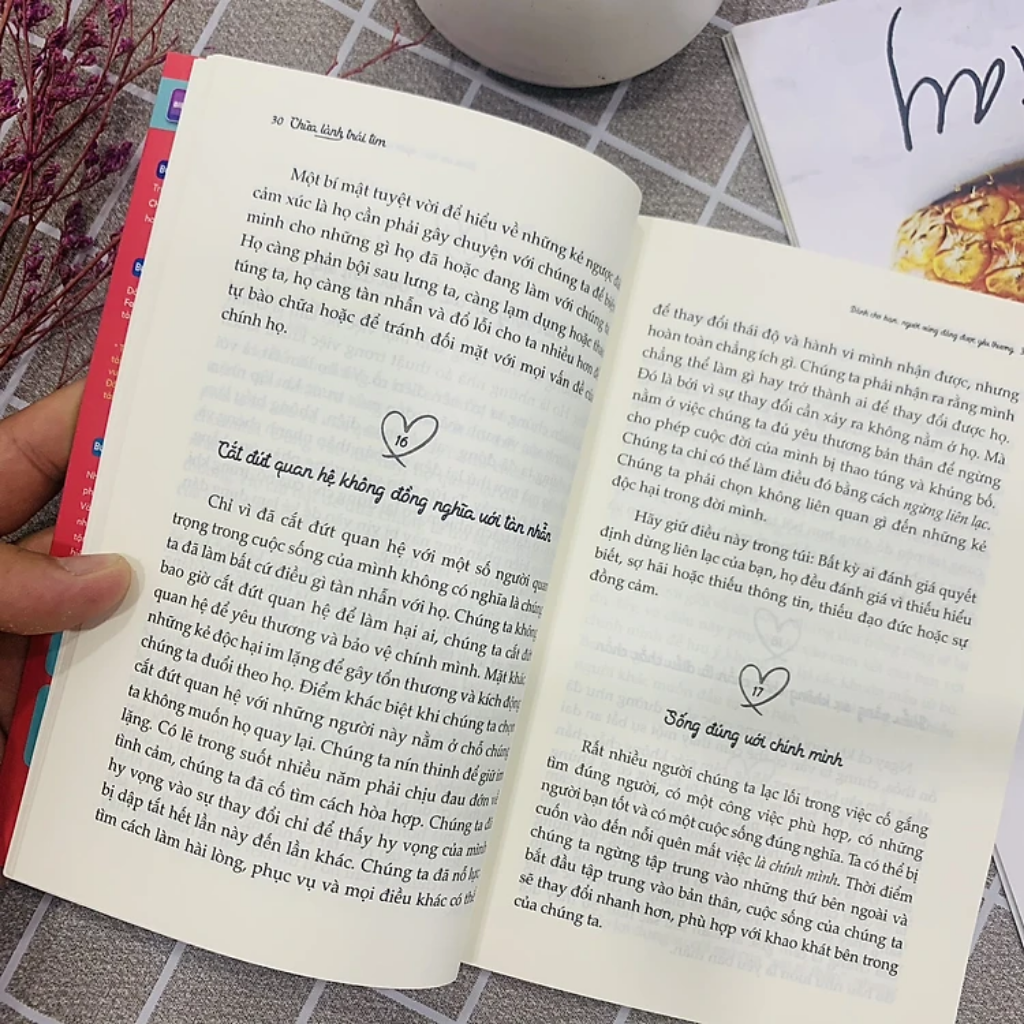 30 Chữa lành trái tim
Một bí mật tuyệt vời để hiểu về những kẻ ngược đãi
cảm xúc là họ cần phải gây chuyện với chúng ta để biện
minh cho những gì họ đã hoặc đang làm với chúng ta.
Họ càng phản bội sau lưng ta, càng lạm dụng hoặc thao
túng ta, họ càng tàn nhẫn và đổ lỗi cho ta nhiều hơn để
tự bào chữa hoặc để tránh đối mặt với mọi vấn đề của
chính họ.
16
Cắt đứt quan hệ không đồng nghĩa với tàn nhẫn
Chỉ vì đã cắt đứt quan hệ với một số người quan
trọng trong cuộc sống của mình không có nghĩa là chúng
ta đã làm bất cứ điều gì tàn nhẫn với họ. Chúng ta không
bao giờ cắt đứt quan hệ để làm hại ai, chúng ta cắt đứt
quan hệ để yêu thương và bảo vệ chính mình. Mặt khác,
những kẻ độc hại im lặng để gây tổn thương và kích động
chúng ta đuổi theo họ. Điểm khác biệt khi chúng ta chọn
cắt đứt quan hệ với những người này nằm ở chỗ chúng
ta không muốn họ quay lại. Chúng ta nín thinh để giữ im
lặng. Có lẽ trong suốt nhiều năm phải chịu đau đớn về
tình cảm, chúng ta đã cố tìm cách hòa hợp. Chúng ta đã
hy vọng vào sự thay đổi chỉ để thấy hy vọng của mình
bị dập tắt hết lần này đến lần khác. Chúng ta đã nỗ lực
tìm cách làm hài lòng, phục vụ và mọi điều khác có thể
Dành cho bạn, người xứng đáng được yêu thương
để thay đổi thái độ và hành vi mình nhận được, nhưng
hoàn toàn chẳng ích gì. Chúng ta phải nhận ra rằng mình
chẳng thể làm gì hay trở thành ai để thay đổi được họ.
Đó là bởi vì sự thay đổi cần xảy ra không nằm ở họ. Mà
nằm ở việc chúng ta đủ yêu thương bản thân để ngừng
cho phép cuộc đời của mình bị thao túng và khủng bố.
Chúng ta chỉ có thể làm điều đó bằng cách ngừng liên lạc.
Chúng ta phải chọn không liên quan gì đến những kẻ
độc hại trong đời mình.
Hãy giữ điều này trong túi: Bất kỳ ai đánh giá quyết
định dừng liên lạc của bạn, họ đều đánh giá vì thiếu hiểu
biết, sợ hãi hoặc thiếu thông tin, thiếu đạo đức hoặc sự
đồng cảm.
17
Sống đúng với chính mình
Rất nhiều người chúng ta lạc lối trong việc cố gắng
tìm đúng người, có một công việc phù hợp, có những
người bạn tốt và có một cuộc sống đúng nghĩa. Ta có thể bị
cuốn vào đến nỗi quên mất việc là chính mình. Thời điểm
chúng ta ngừng tập trung vào những thứ bên ngoài và
bắt đầu tập trung vào bản thân, cuộc sống của chúng ta
sẽ thay đổi nhanh hơn, phù hợp với khao khát bên trong
của chúng ta.